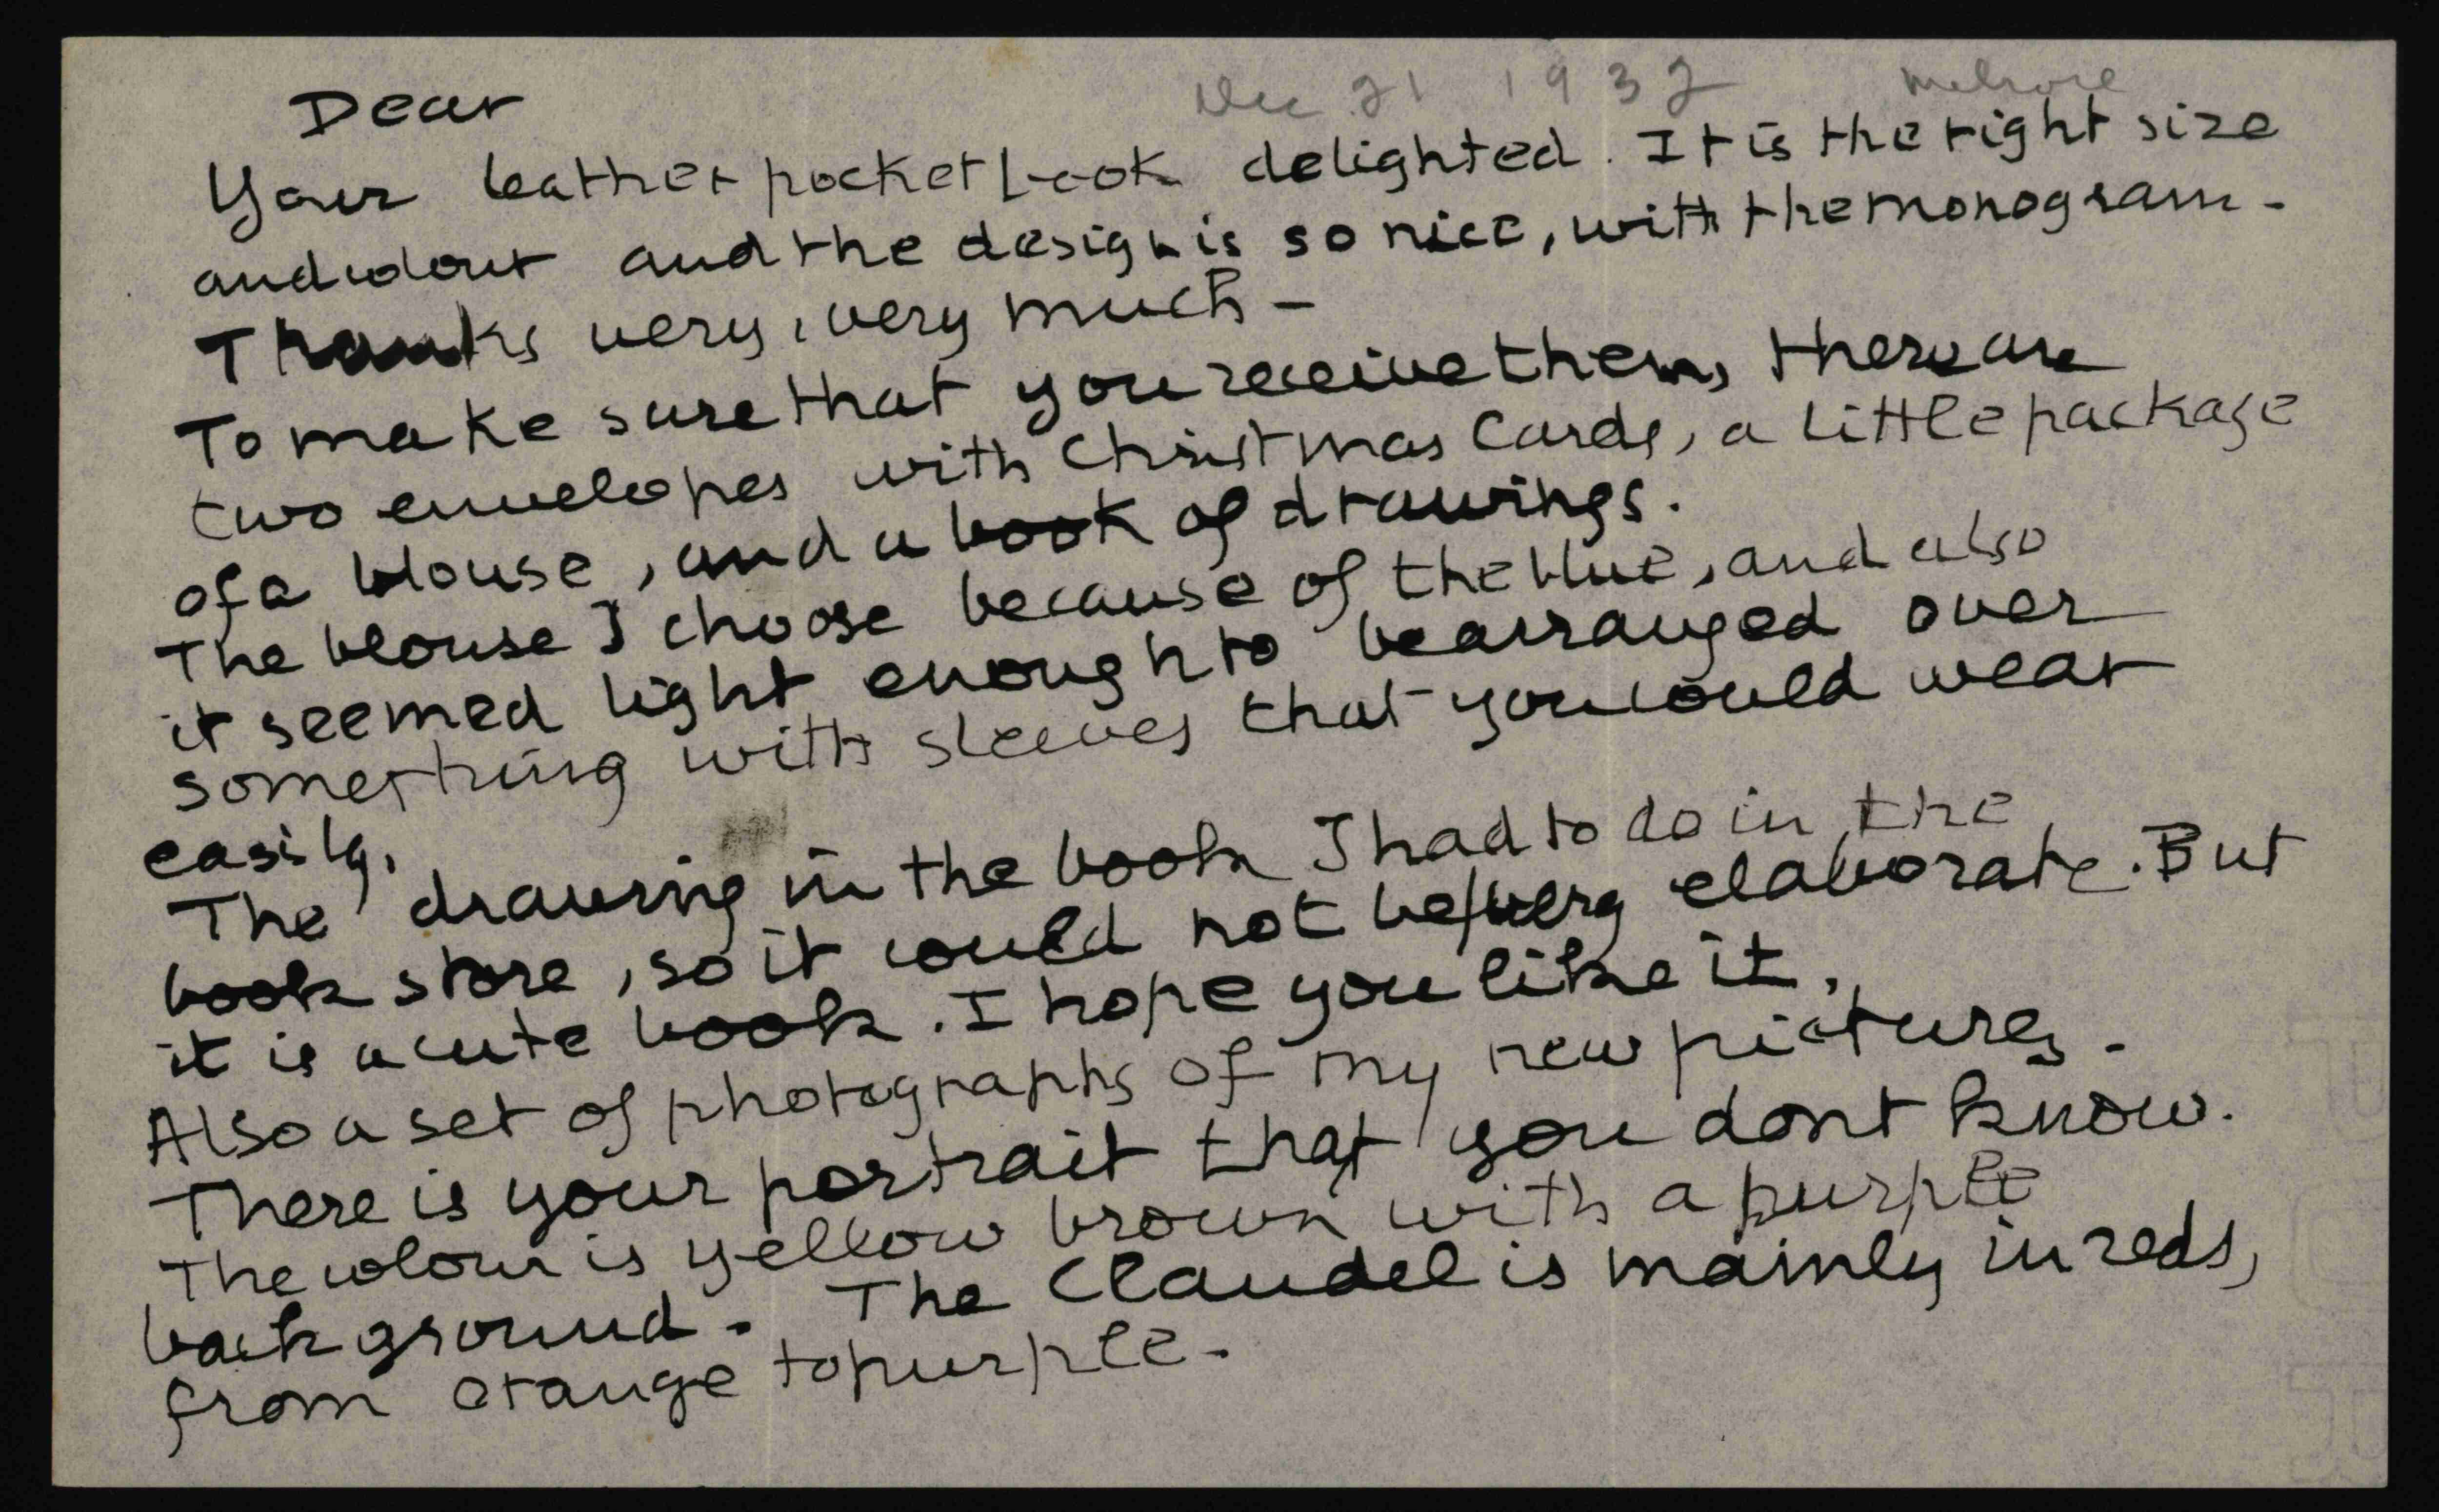 Dec 21 1932 Melrose
Dear
Your leather pocket book delighted. It is the right size
and colour and the design is so nice, with the monogram -
Thanks very, very much -
To make sure that you receive them, there are
two envelopes with Christmas Cards, a little package
of a blouse, and a book of drawings.
The blouse I choose because of the blue, and also
it seemed light enough to be arranged over
something with sleeves that you could wear
easily.
The drawing in the book I had to do in the
book store, so it could not be very elaborate. But
it is a cute book. I hope you like it.
Also a set of photographs of my new pictures.
There is your portrait that you dont know.
The colour is yellow brown with a purple
back ground. The Claudel is mainly in reds,
from orange to purple.